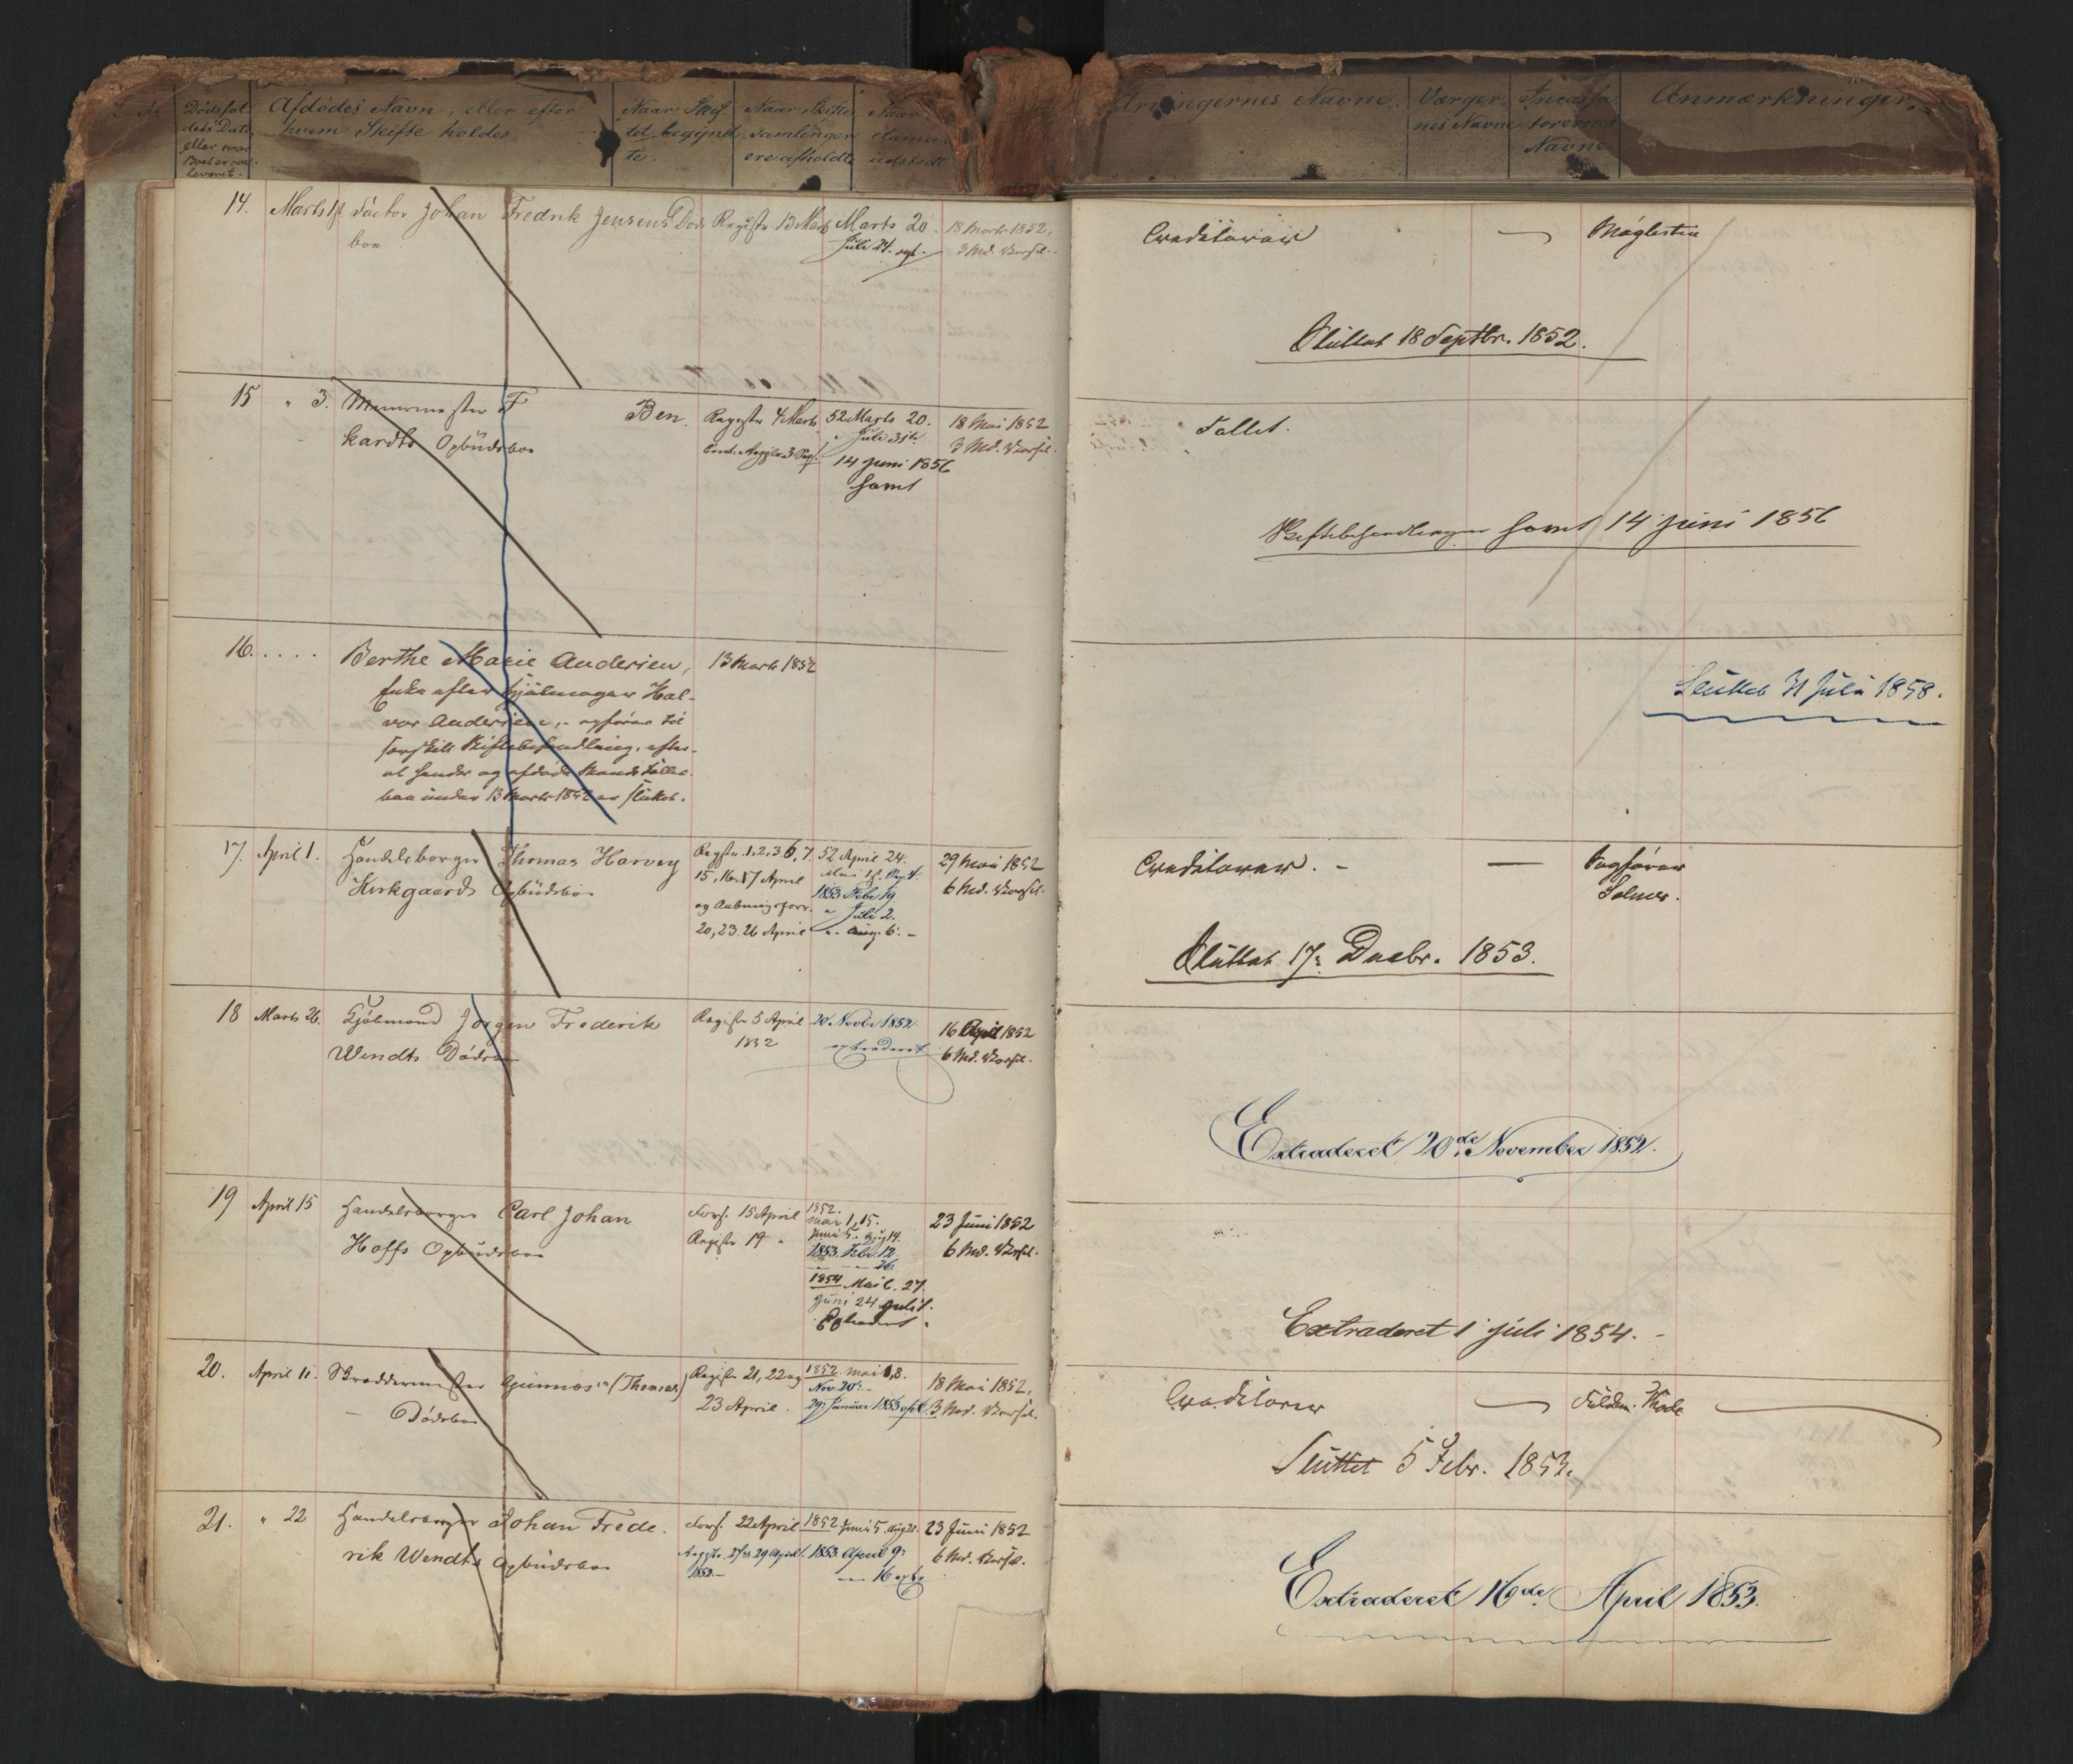 Dødsfal-
dets Dato
eller naar
Boet er ove-
leveret.
Afdødes Navn, eller efter
hvem Skifte holdes.
Naar Skif-
tet begynd-
te.
Naar Skifte
samlinger
ere afholdte
Naar
udstedt
Arvingernes Navne.
Værger-
nes Navne
Incassa
torernes
Navne
Anmærkninger.
14. Marts Factor Johan Fredrik Jensens Døds
boe
Registr. 13 Marts
Marts 20.
Juli 24.
18 Marts 1852,
3 Md. Varsel.
Creditorer
Sluttet 18 Septbr. 1852.
15 " 3. Muurmester F Ben
kardts Opbudsboe
Registr. 4 Marts
52 Marts 20.
" Juli 31te
14 Juni 1856
18 Mai 1852
3 Md. Varsel.
Fallet.
Skiftebehandlingen 14 Juni 1856
16. . . . . Berthe Marie Andersen,
Enke efter Hal-
vor Andersen,
Skiftebehandling, efter-
at hendes og afdøde Mands Fallit-
boe under 13 Marts 1852 er sluttet.
13 Marts 1852
Sluttet 31 Juli 1858.
17. April 1. Handelsborger Thomas Harvey
Kirkgaards Opbudsboe
Registr. 1, 2, 3, 6, 7.
15, 16, 17 April
20, 23. 26 April
52 April 24.
1853 Febr 19
" Juli 2.
" Aug. 6. -
29 Mai 1852
6 Md. Varsel.
Creditorer. -
Sagfører
Sluttet 17. Decbr. 1853.
18 Marts 26. Kjøbmand Jørgen Frederik
Wendts Dødsboe
Registr 5 April
1852
20 Novbr 1852
extraderet
16 April 1852
6 Md. Varsel.
Extraderet 20de November 1852.
19 April 15 Handelsborger Carl Johan
Hoffs Opbudsboe
Fors. 15 April
Registr 19 "
1852.
Mai 1, 15.
Juni 5.
1853. Febr 12.
26.
1854 Mai 27
Juni 24 Juli 1.
Extraderet.
23 Juni 1852
6 Md. Varsel.
Extraderet 1 Juli 1854. -
20. April 11. Skræddermester (Thomas)
- Dødsboe
Registr. 21, 22 og
23 April.
1852 Mai 8.
Nov 20.
29. Januar 1853
18 Mai 1852,
3 Md. Varsel.
Creditorer
Sluttet 5 Febr. 1853.
21. " 22 Handelsborger Johan Frede-
rik Wendts Opbudsboe
Fors. 22 April
29 April
1852.-
1852 Juni 5. Aug 21.
1853. April 9.
— 16 extr
23 Juni 1852
6 Md. Varsel.
Extraderet 16de April 1853.